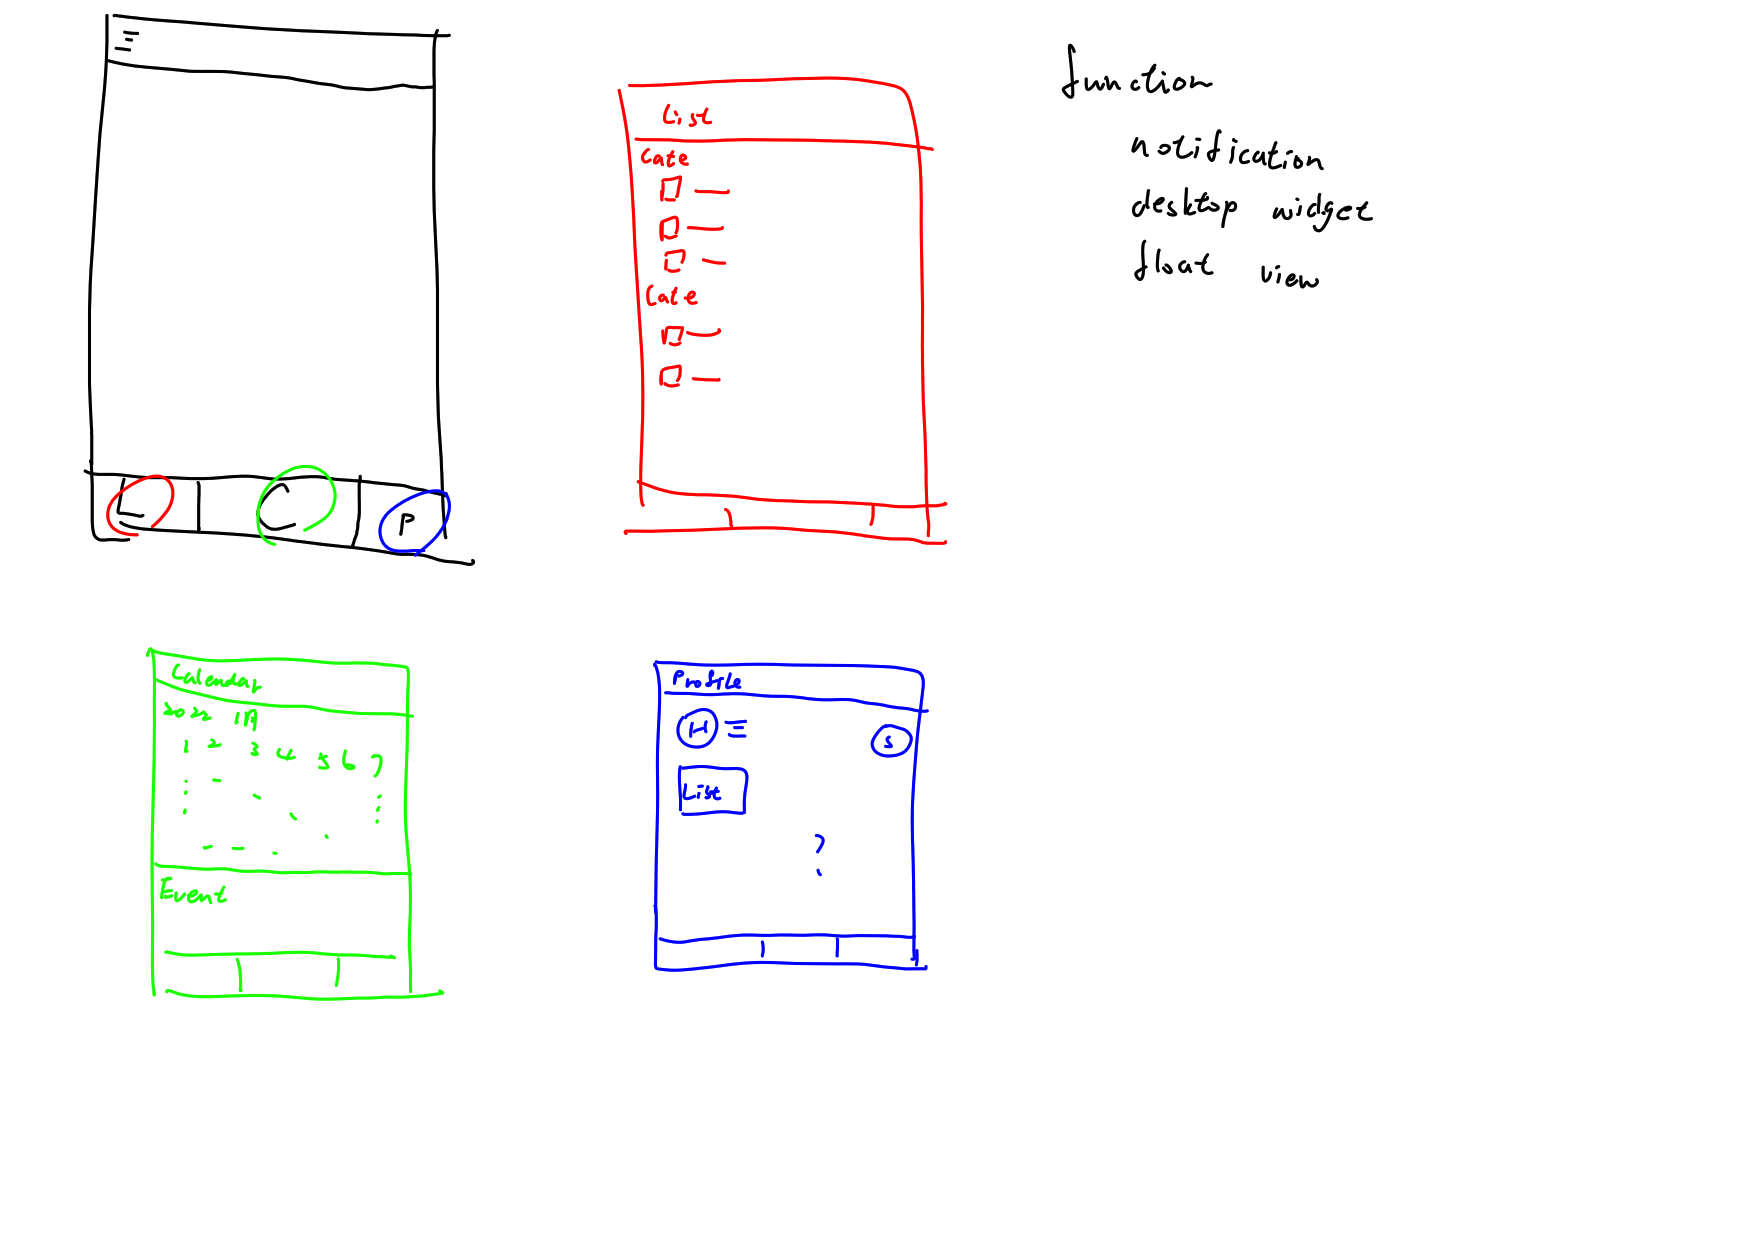 L C P
List
Cate
Cate
function
notification
desktop widget
float view
Calendar
2022 1月
1 2 3 4 5 6 7
Event
Profile
H
S
List
?